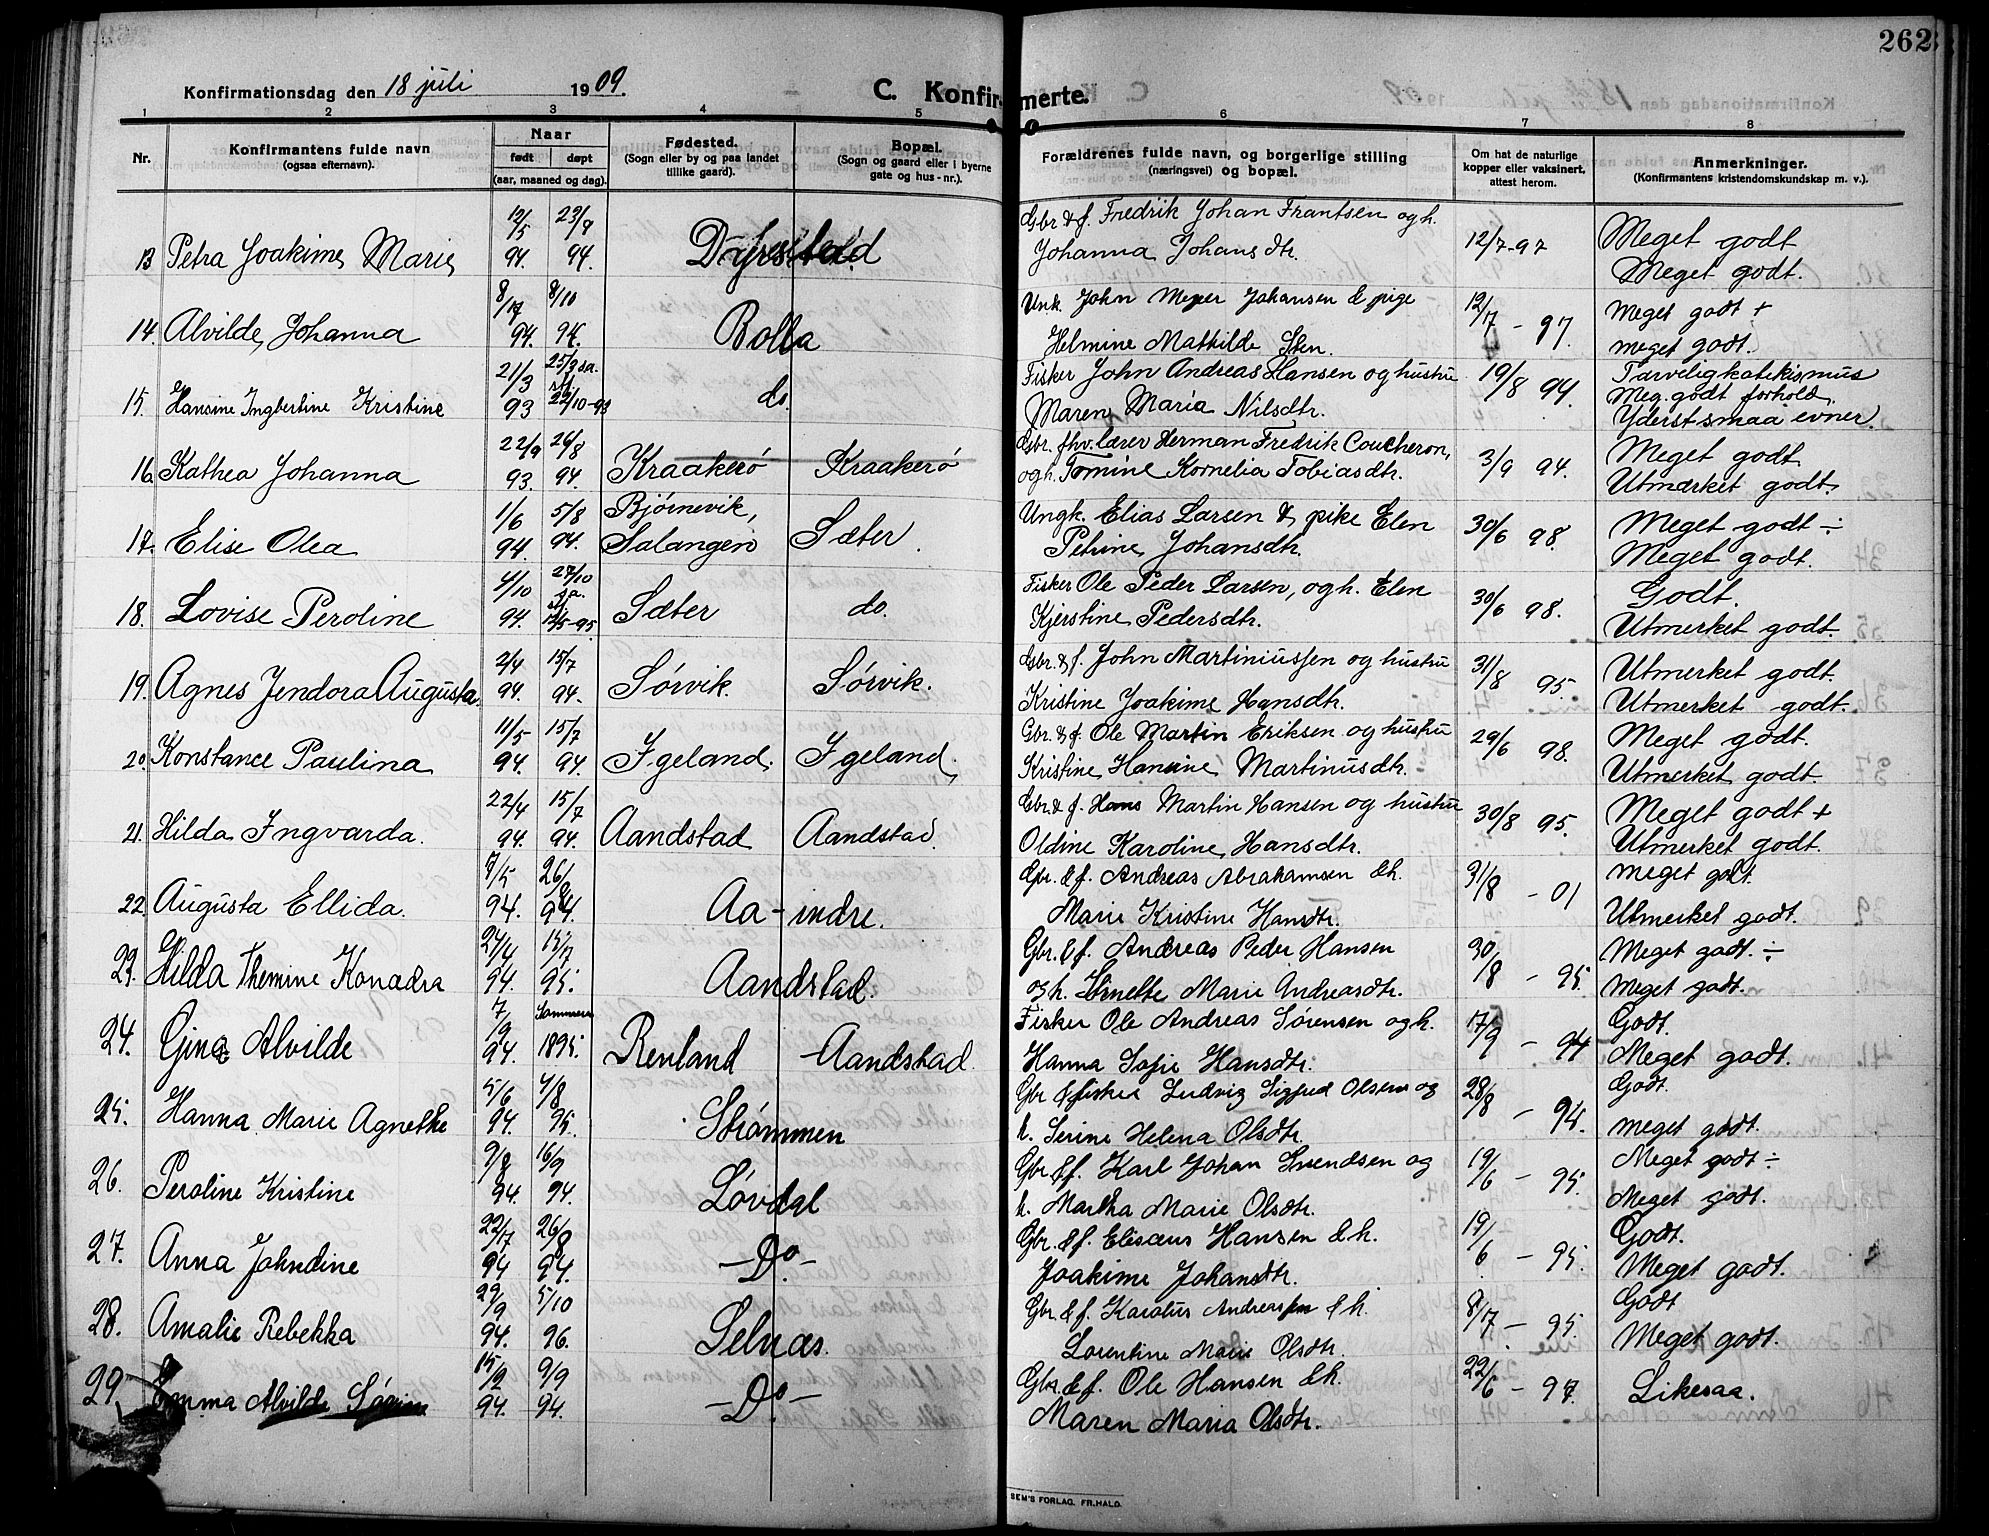 262
Konfirmationsdag den 18 juli 1909.
C. Konfirmerte.
1 2 3 4 5 6 7 8
Nr.
Konfirmantens fulde navn
(ogsaa efternavn).
Naar
født døpt
(aar, maaned og dag).
Fødested.
(Sogn eller by og paa landet
tillike gaard).
Bopæl.
(Sogn og gaard eller i byerne
gate og hus-nr.).
Forældrenes fulde navn, og borgerlige stilling
(næringsvei) og bopæl.
Om hat de naturlige
kopper eller vaksinert,
attest herom.
Anmerkninger.
(Konfirmantens kristendomskundskap m. v.).
12/5 23/9 Gbr & f. Fredrik Johan Frantsen og h. Meget godt
13 Petra Joakime Marie 94. 94. Dyrstad Johanna Johansdtr. 12/7-97 Meget godt.
8/10 Unk. John Meyer Johansen & pige 12/7 - 97. Meget godt +
14. Alvilde Johanna 94. 94. Bolla Helmine Mathilde Sten. meget godt.
21/3 25/3 da. Fisker John Andreas Hansen og hustru 19/8 94. Tarvelig katekismus
15. Hansine Ingbertine Kristine 93 22/10-93 do. Maren Maria Nilsdtr. Meg. godt forhold.
Yderst smaa evner.
22/9 26/8 Gbr. fhv. lærer Herman Fredrik Coucheron, Meget godt
16. Kathea Johanna 93. 94. Kraakerø Kraakerø og h. Tomine Kornelia Tobiasdtr. 3/9 94. Utmærket godt.
1/6 5/8 Bjørnevik, Ungk. Elias Larsen & pike Elen Meget godt ÷
17. Elise Olea 94. 94. Salangen Sæter. Petrine Johansdtr. 30/6 98. Meget godt.
4/10 27/10 da. Fisker Ole Peder Larsen, og h. Elen Godt.
18. Lovise Peroline 94. 12/5-95 Sæter do. Kjerstine Pedersdtr. 30/6 98. Utmerket godt.
2/4 15/7 Gbr. & f. John Martiniussen og hustru Utmerket godt.
19. Agnes Jendora Augusta 94. 94. Sørvik. Sørvik. Kristine Joakime Hansdtr. 31/8 95. Utmerket godt.
11/5 15/7 Gbr. & f. Ole Martin Eriksen og hustru Meget godt.
20. Konstance Paulina 94. 94. Igeland. Igeland. Kristine Hansine Martinusdtr. 29/6 98. Utmerket godt.
22/4 15/7 Gbr & f. Hans Martin Hansen og hustru Meget godt +
21. Hilda Ingvarda. 94. 94. Aandstad Aandstad. Oldine Karoline Hansdtr. 30/8 95. Utmerket godt.
7/5 26/8 Gbr. & f. Andreas Abrahamsen & h. meget godt.
22. Augusta Ellida. 94. 94. Aa-indre. Marie Kristine Hansdtr. 31/8 - 01 Utmerket godt.
24/4 15/7 Gbr. & f. Andreas Peder Hansen Meget godt. ÷
23. Hilda Themine Konadra 94. 95. Aandstad. og h. Marie Andreasdtr. 30/8 - 95. Meget godt.
7/9 Sommeren Fisker Ole Andreas Sørensen og h. Godt.
24. Gina Alvilde 94. 1895. Renland - Aandstad. Hanna Sofie Hansdtr. 17/9 - 94 Meget godt.
5/6 4/8 Gbr & fisker Ludvig Sigfred Olsen og Godt.
25. Hanna Marie Agnethe 94. 95. Strømmen h. Serine Helena Olsdtr. 28/8 - 94. meget godt.
9/8 16/9 Gbr. & f. Karl Johan Svendsen og Meget godt ÷
26. Peroline Kristine 94. 94. Løvdal h. Martha Marie Olsdtr. 19/6 - 95. Meget godt.
22/7 26/8 Gbr. & f. Elisæus Hansen & h. Godt.
27. Anna Johndine 94 94. -Do- Joakime Johansdtr. 19/6 - 95. Meget godt.
29/9 5/10 Gbr & f. Karolus Andreassen & h. Godt
28. Amalie Rebekka 94. 96. Selnæs. Lorentine Marie Olsdtr. 8/7 - 95. Meget godt.
15/2 9/9 Gbr. & f. Ole Hansen & h.
29. Emma Alvilde 94. 94. -Do- Maren Maria Olsdtr. 22/6 - 97. Likesaa.
SEM'S FORLAG. FR.HALD.